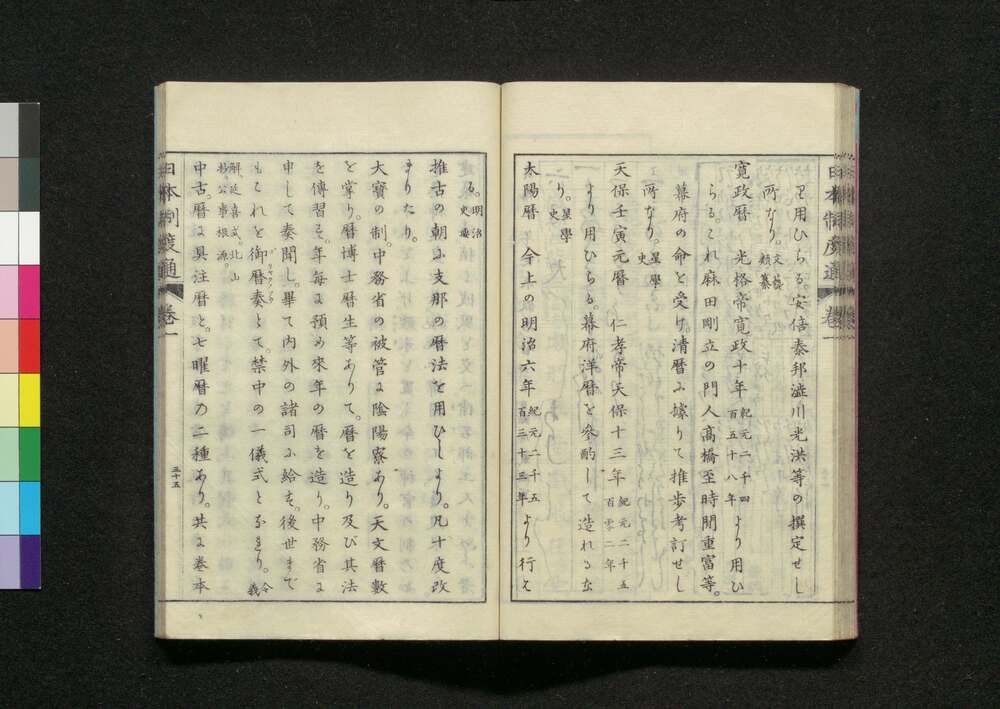 日本制度通 卷一
り用ひらる。安倍泰邦澁川光洪等の撰定せし
所なり。文藝類纂
寛政暦 光格帝寛政十年紀元二千四百五十八年より用ひ
らる。これ麻田剛立の門人高橋至時間重富等。
幕府の命を受け。清暦に據りて推歩考訂せし
所なり。星學史
天保壬寅元暦 仁孝帝天保十三年紀元二千五百零二年
より用ひらる。幕府洋暦を參酌して造れるな
り。星學
太陽暦 今上の明治六年紀元二千五百三十三年より行は
る。明治史要
推古の朝に支那の暦法を用ひしより。凡十度改
まりたり。
大寶の制。中務省の被管に陰陽寮あり。天文暦數
を掌り。暦博士暦生等ありて。暦を造り及び其法
を傳習す。年毎に預め來年の暦を造り。中務省に
申して奏聞し。畢て内外の諸司に給す。後世まで
もこれを御暦奏とて。禁中の一儀式となれり。令義
解延喜式。北山抄公事根源。
中古。暦に具注暦と。七曜暦の二種あり。共に卷本
日本制度通 卷一
三十五